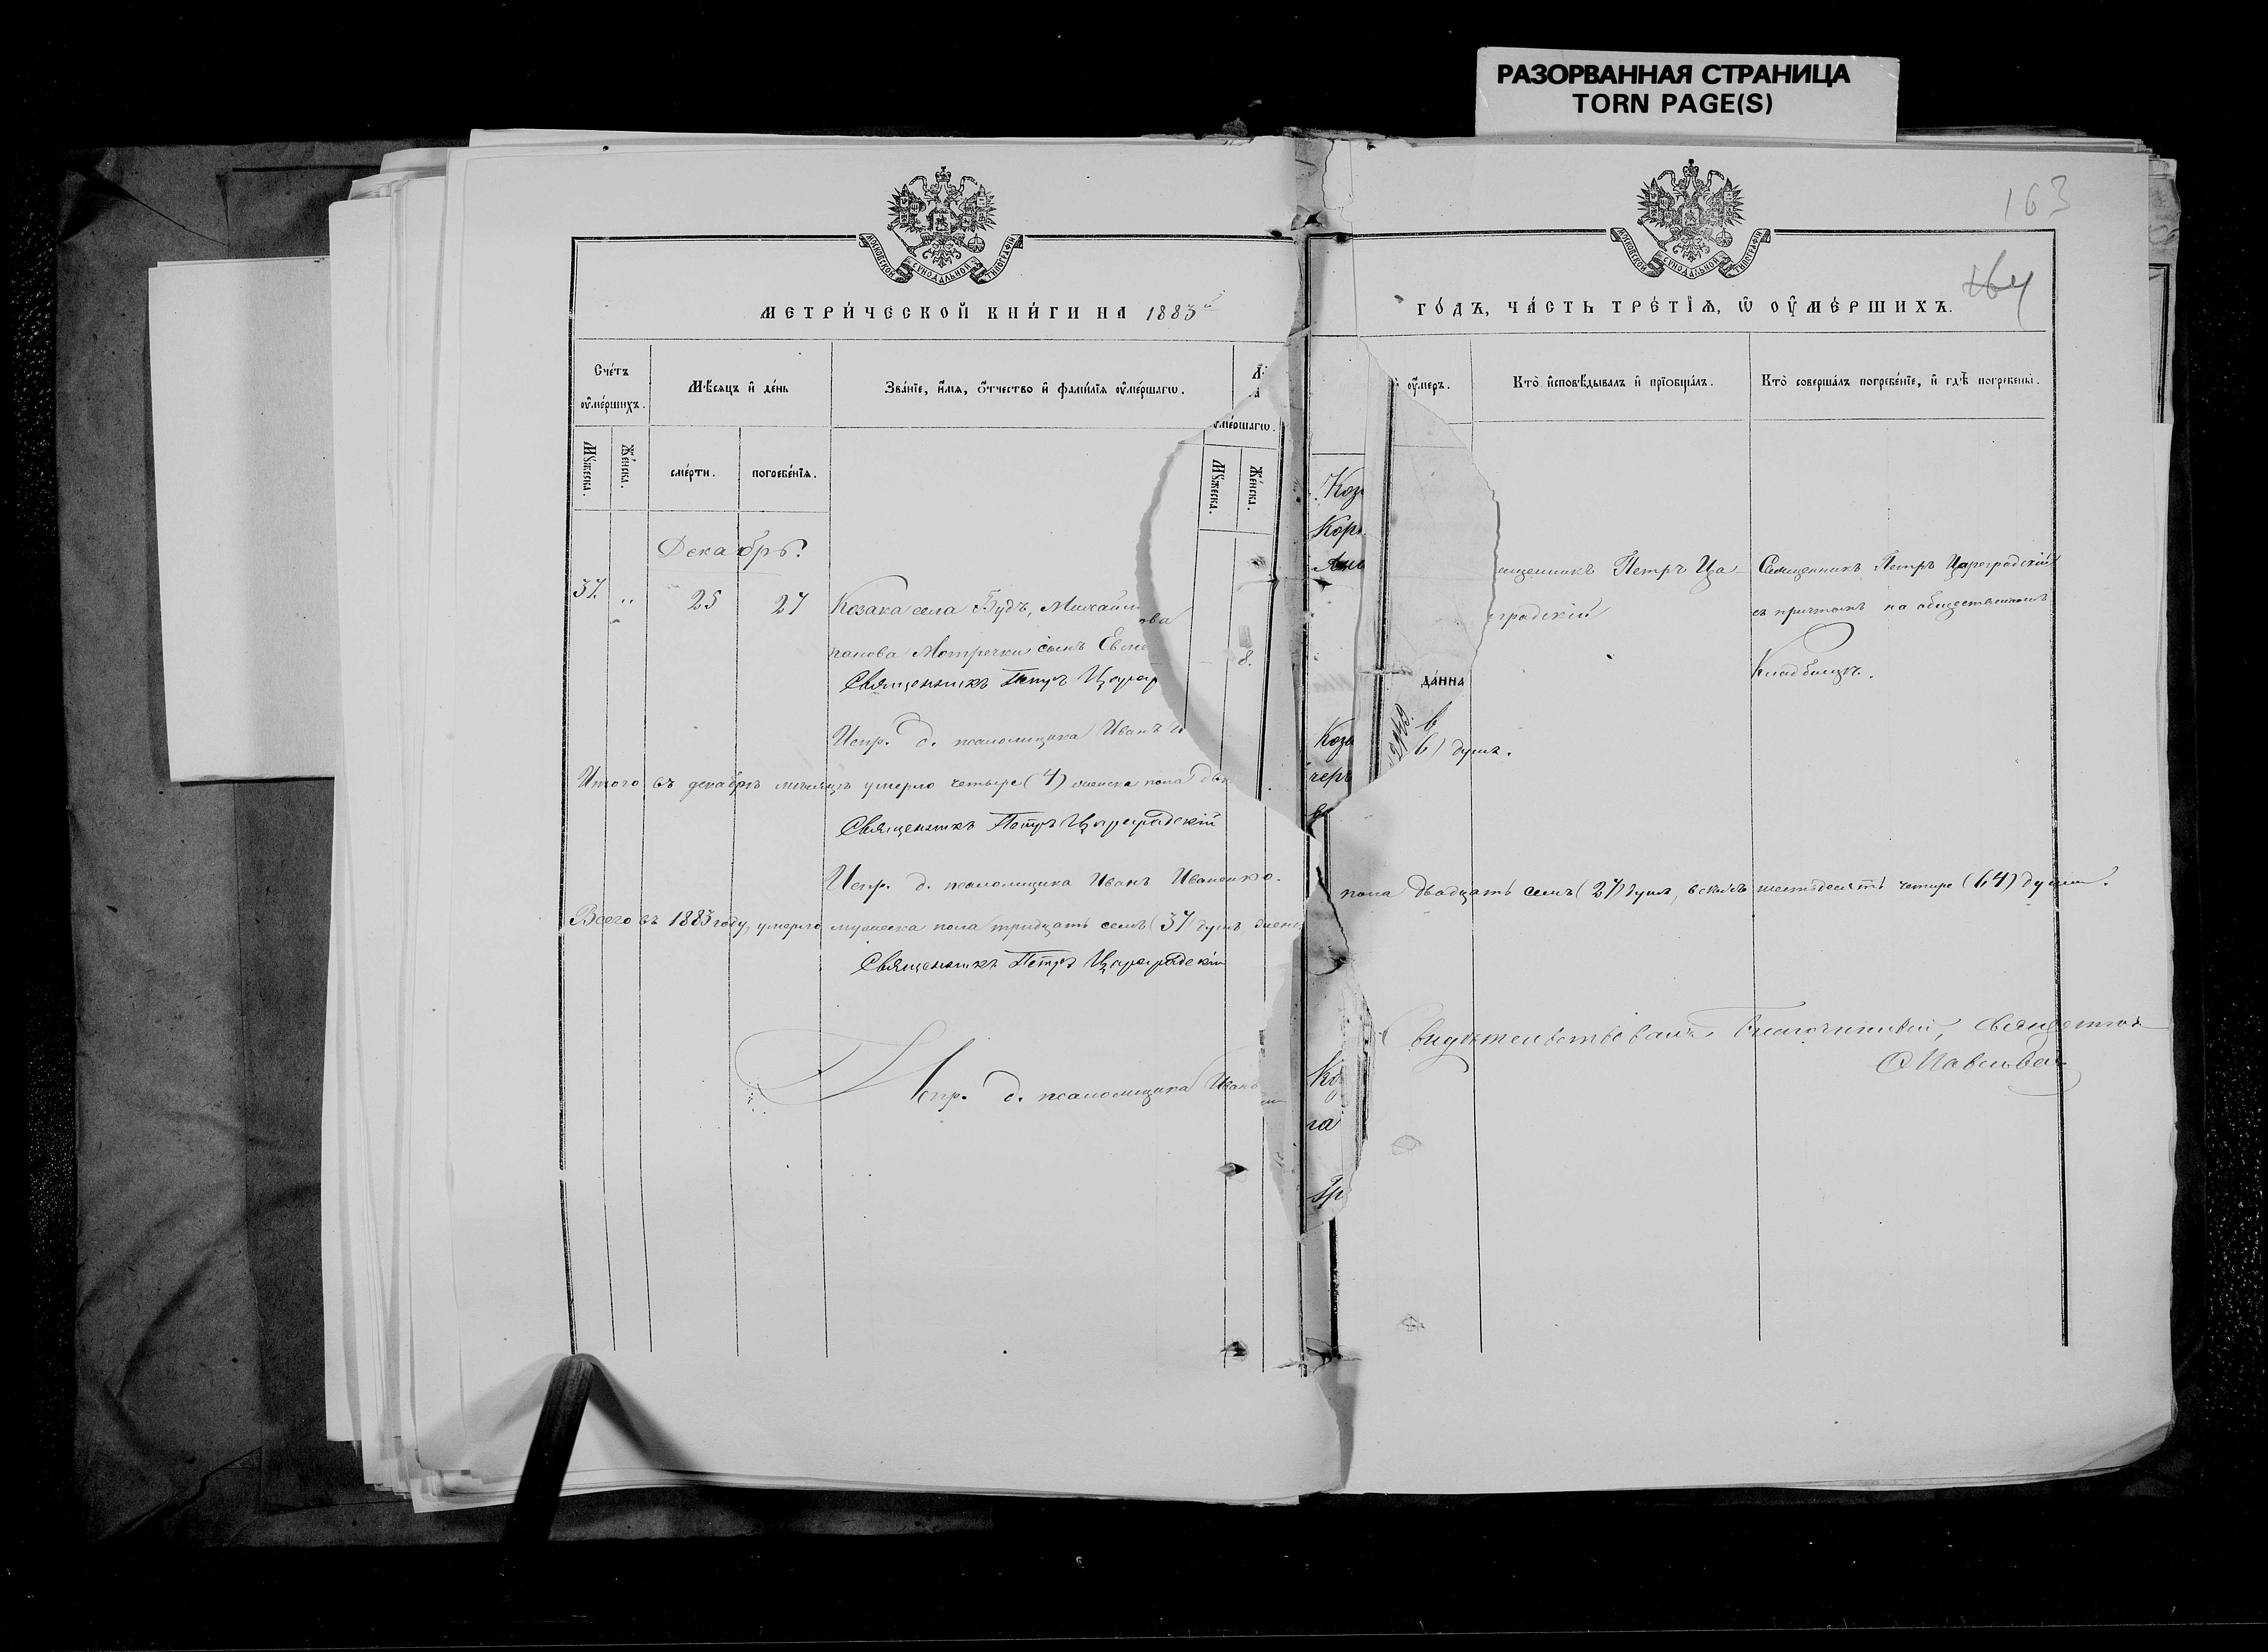 РАЗОРВАННАЯ СТРАНИЦА
TORN PAGE(S)
163
МОСКОВСКОЙ СѴНОДАЛЬНОЙ ТИПОГРАФІИ
МОСКОВСКОЙ СѴНОДАЛЬНОЙ ТИПОГРАФІИ
МЕТРИ́ЧЕСКОЙ КНИ́ГИ НА 1883й
ГО́ДЪ, ЧА́СТЬ ТРЕ́ТІѦ, Ѡ҆ ОУ҆МЕ́РШИХЪ.
Сче́тъ оу҆ме́ршихъ.
Мѣ́сяцъ и҆ де́нь
Зва́нїе, и҆́мя, ѻ҆́тчество и҆ фами́лїя оу҆ме́ршагѡ.
оу҆́меръ.
Кто̀ и҆сповѣ́дывалъ и҆ прїобща́лъ.
Кто̀ соверша́лъ погребе́нїе, и҆ гдѣ̀ погребены̀.
ме́ршагѡ.
Мꙋ́жеска.
Же́нска.
сме́рти.
погребе́нїя.
Мꙋ́жеска.
Же́нска.
Декабрь.
37. „ 25 27 Козака села Будъ, Михаил
ова
панова Мотречки сынъ Евме
8.
ященникъ Петръ Ца
градскій
Священникъ Петръ Цареградскій
съ причтомъ на общественномъ
Кладбищѣ.
Священникъ Петръ Царегр
да́нна
Испр. д. псаломщика Иванъ И
6) душъ.
Итого въ декабрѣ мѣсяцѣ умерло четыре (4) женска пола две
Священникъ Петръ Цареградскій
Испр. д. псаломщика Иванъ Иваненко.
Всего въ 1883 году, умерло мужеска пола тридцать семь (37 душъ женс
пола двадцать семь (27) душъ, всихъ шестьдесятъ четыре (64) души.
Священникъ Петръ Цареградскій
Испр. д. псаломщика Иванъ
видѣтельствовалъ Благочинный, Священникъ
Коз
Кор
Коза
черъ
Ко
па
Гр